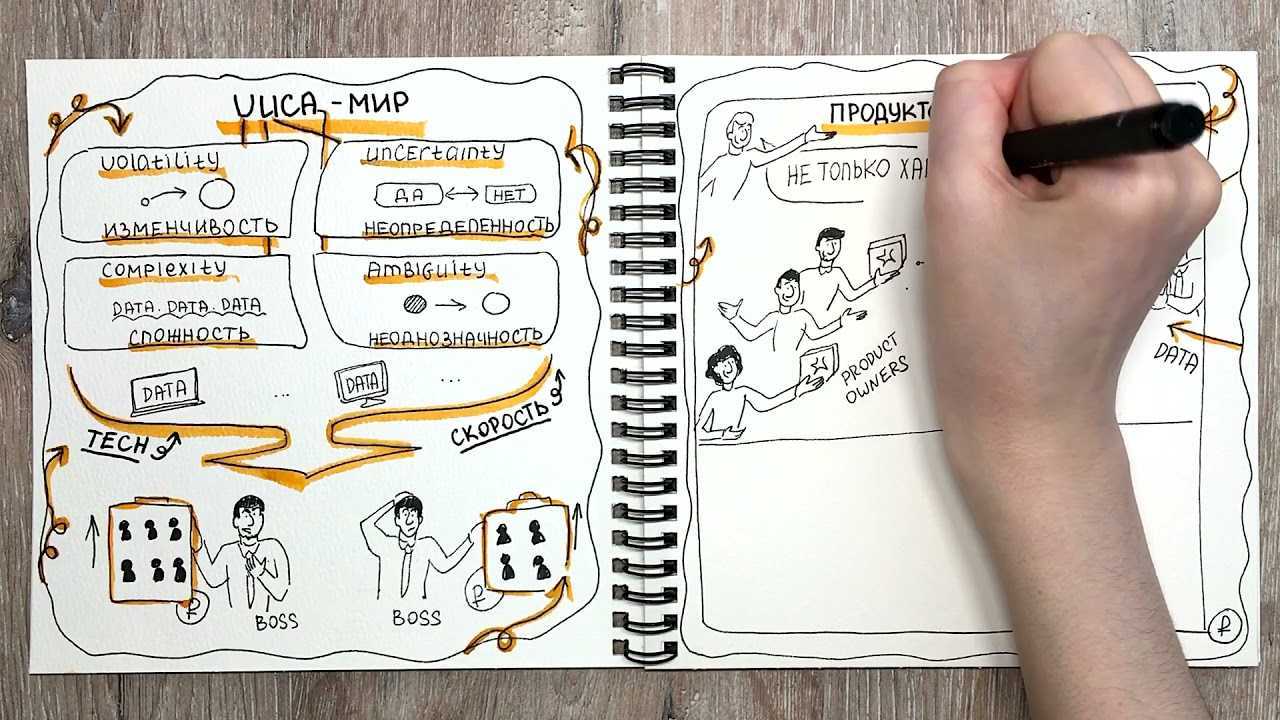 VUCA-МИР
VOLATILITY
ИЗМЕНЧИВОСТЬ
UNCERTAINTY
ДА
НЕТ
НЕОПРЕДЕЛЕННОСТЬ
COMPLEXITY
DATA. DATA. DATA
СЛОЖНОСТЬ
AMBIGUITY
НЕОДНОЗНАЧНОСТЬ
DATA
...
DATA
...
TECH
СКОРОСТЬ
₽
BOSS
BOSS
₽
НЕ ТОЛЬКО
PRODUCT
OWNERS
DATA
₽